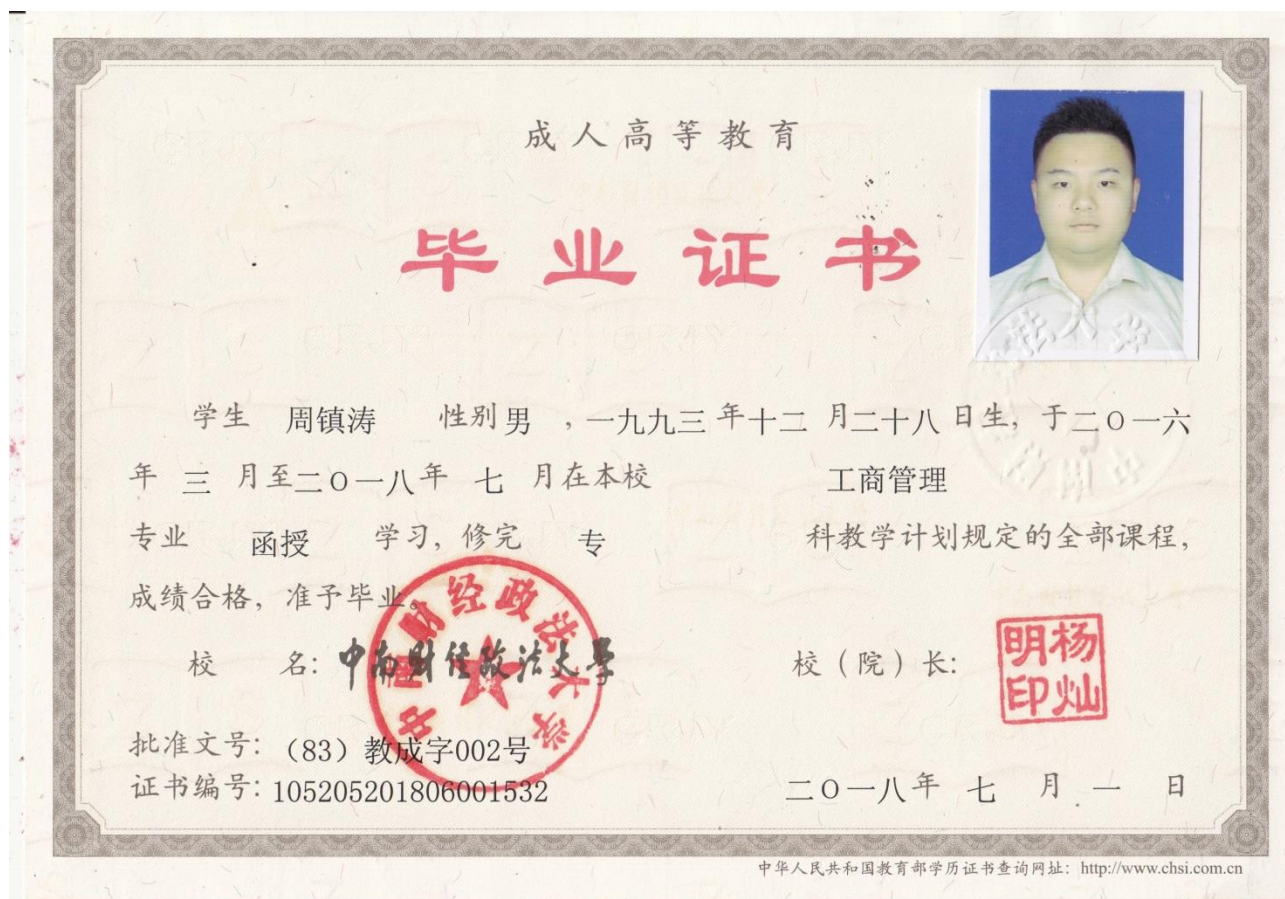 成人高等教育
毕业证书
学生 周镇涛 性别 男 ，一九九三 年十二 月二十八 日生，于二０一六
年 三 月至二０一八年 七 月在本校 工商管理
专业 函授 学习，修完 专 科教学计划规定的全部课程，
成绩合格，准予毕业。
校 名：中南财经政法大学 校（院）长：
中南财经政法大学
杨灿明印
批准文号：（83）教成字002号
证书编号：105205201806001532 二０一八年 七 月 一 日
中华人民共和国教育部学历证书查询网址：http://www.chsi.com.cn